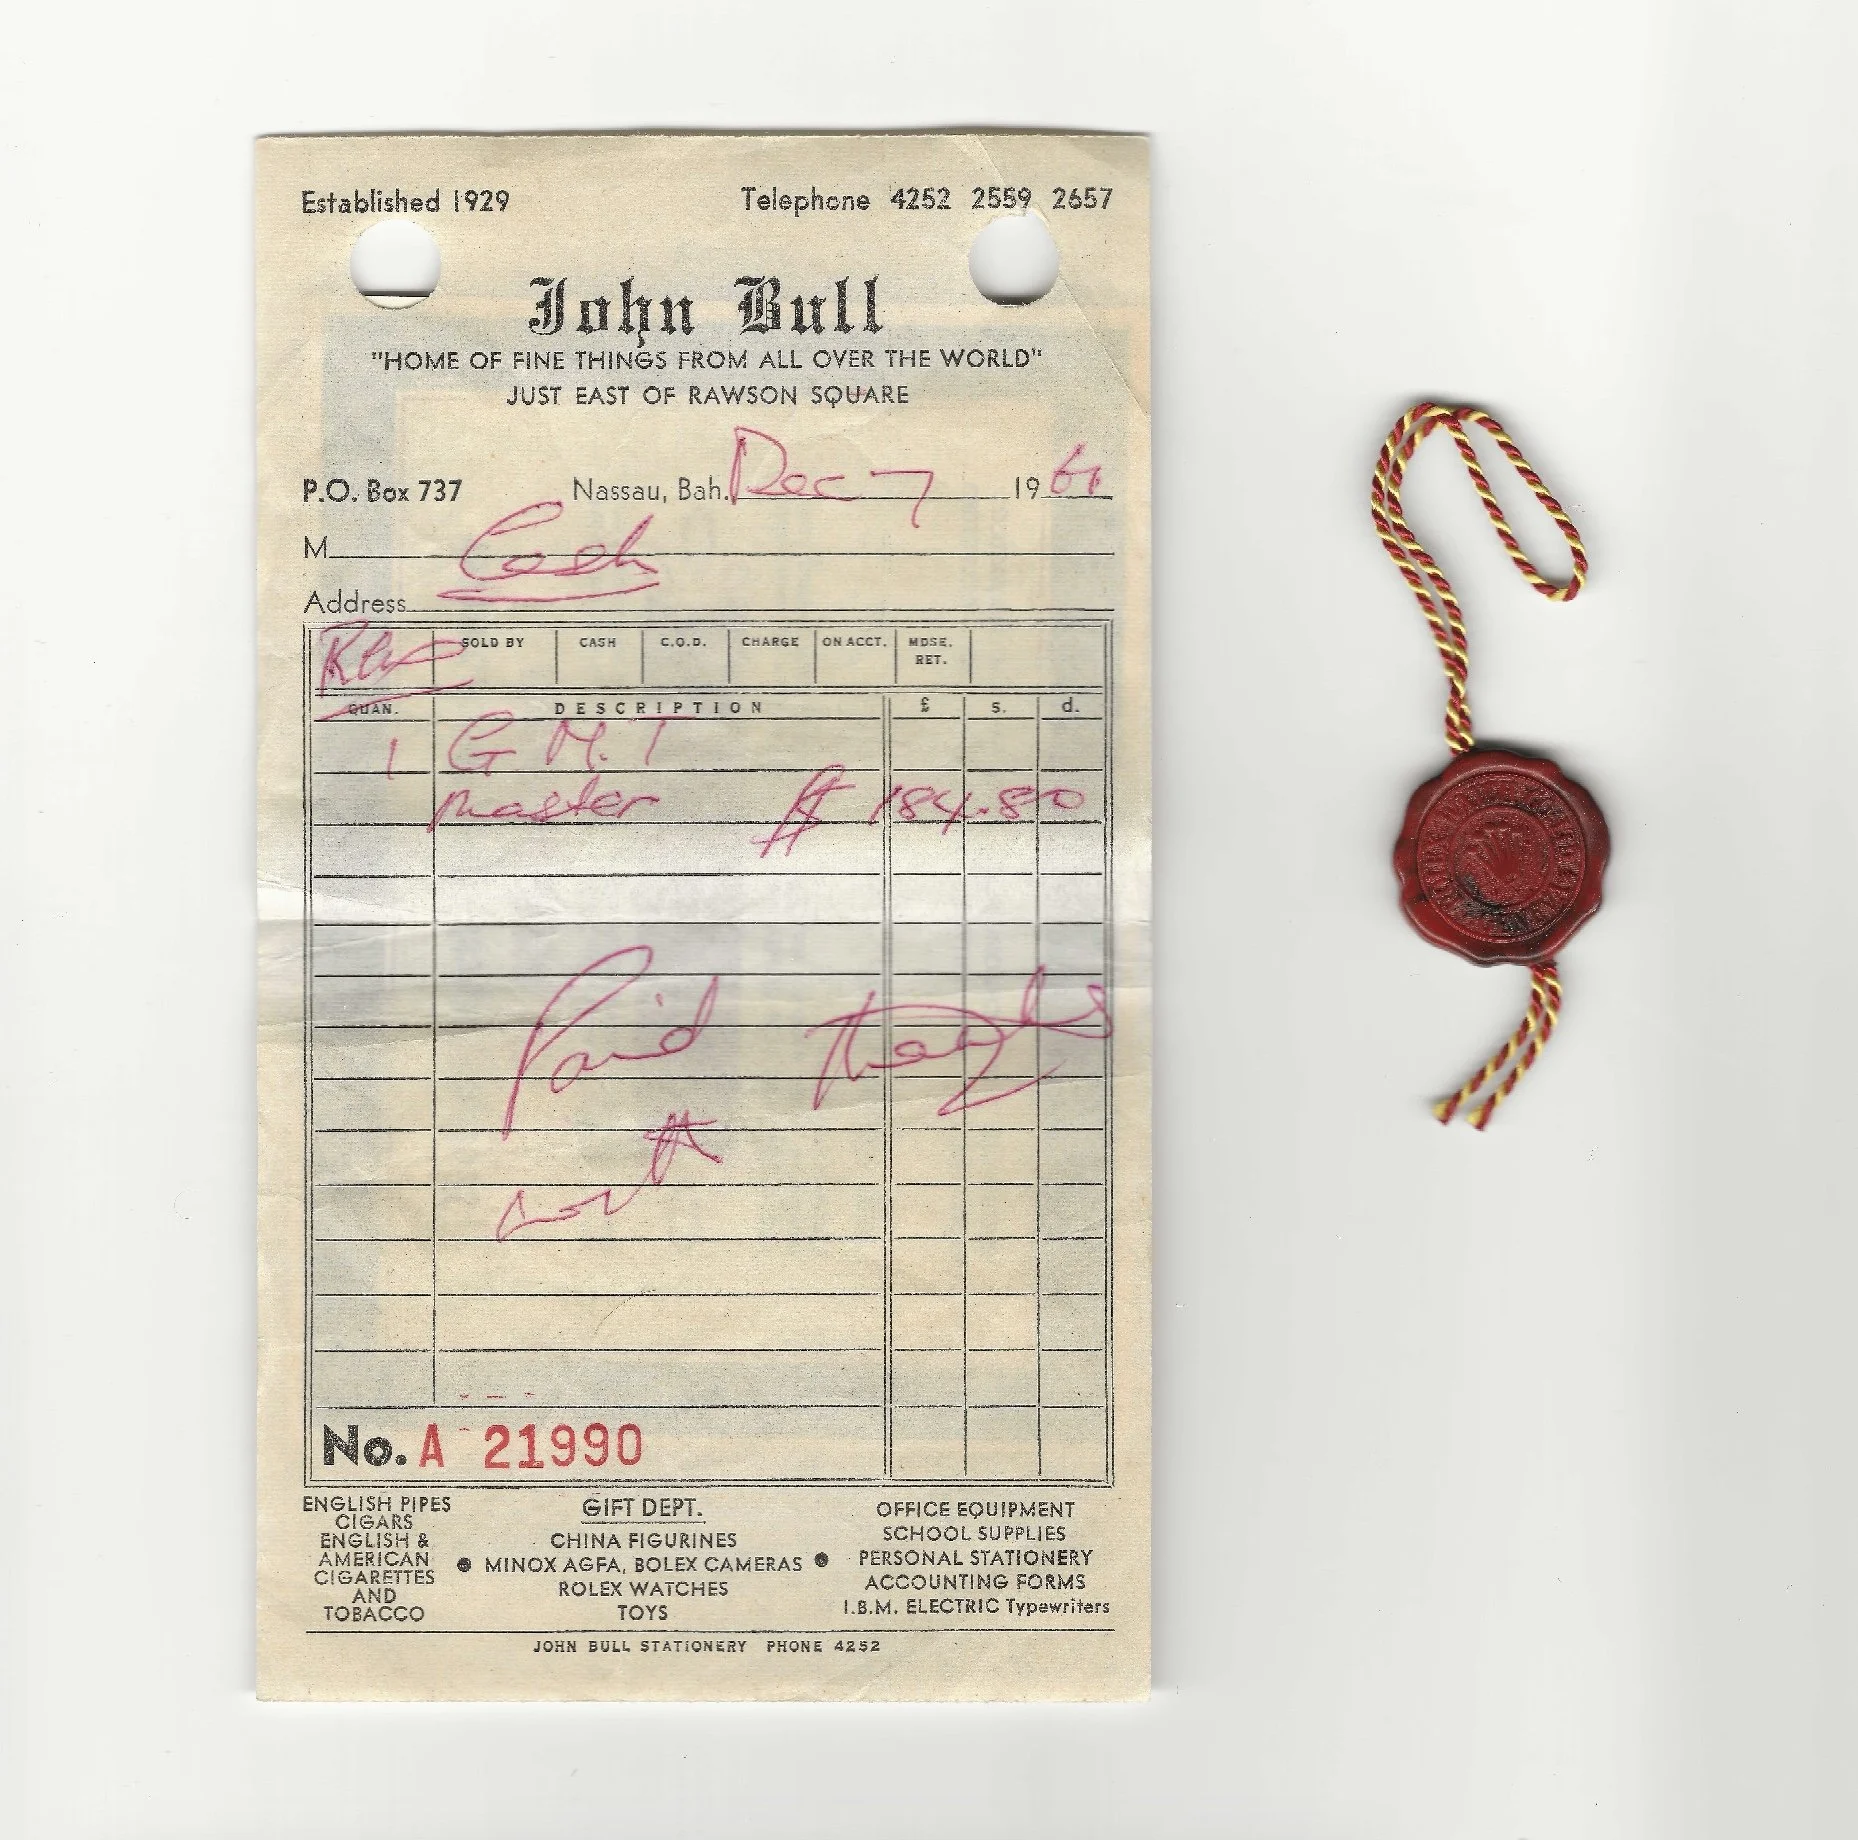 Established 1929 Telephone 4252 2559 2657
John Bull
"HOME OF FINE THINGS FROM ALL OVER THE WORLD"
JUST EAST OF RAWSON SQUARE
P.O. Box 737 Nassau, Bah. Dec 7 19 61
M Cash
Address
SOLD BY CASH C.O.D. CHARGE ON ACCT. MDSE. RET.
QUAN. DESCRIPTION £ s. d.
1 G M.T
Master $ 184.80
Paid Thanks
No. A 21990
ENGLISH PIPES
CIGARS
ENGLISH &
AMERICAN
CIGARETTES
AND
TOBACCO
GIFT DEPT.
CHINA FIGURINES
• MINOX AGFA, BOLEX CAMERAS •
ROLEX WATCHES
TOYS
OFFICE EQUIPMENT
SCHOOL SUPPLIES
PERSONAL STATIONERY
ACCOUNTING FORMS
I.B.M. ELECTRIC Typewriters
JOHN BULL STATIONERY PHONE 4252